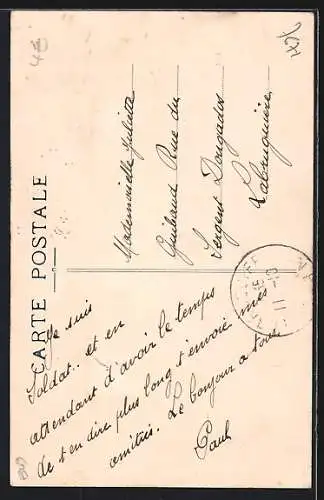 CARTE POSTALE
Je suis
Soldat.. et en
attendant d'avoir le temps
de t'en dire plus long t'envoie mes
amitiés. Le bonjour a tous
Paul
Mademoiselle Juliette
Guibaud Rue du
Sergent Dougados
Labruguière